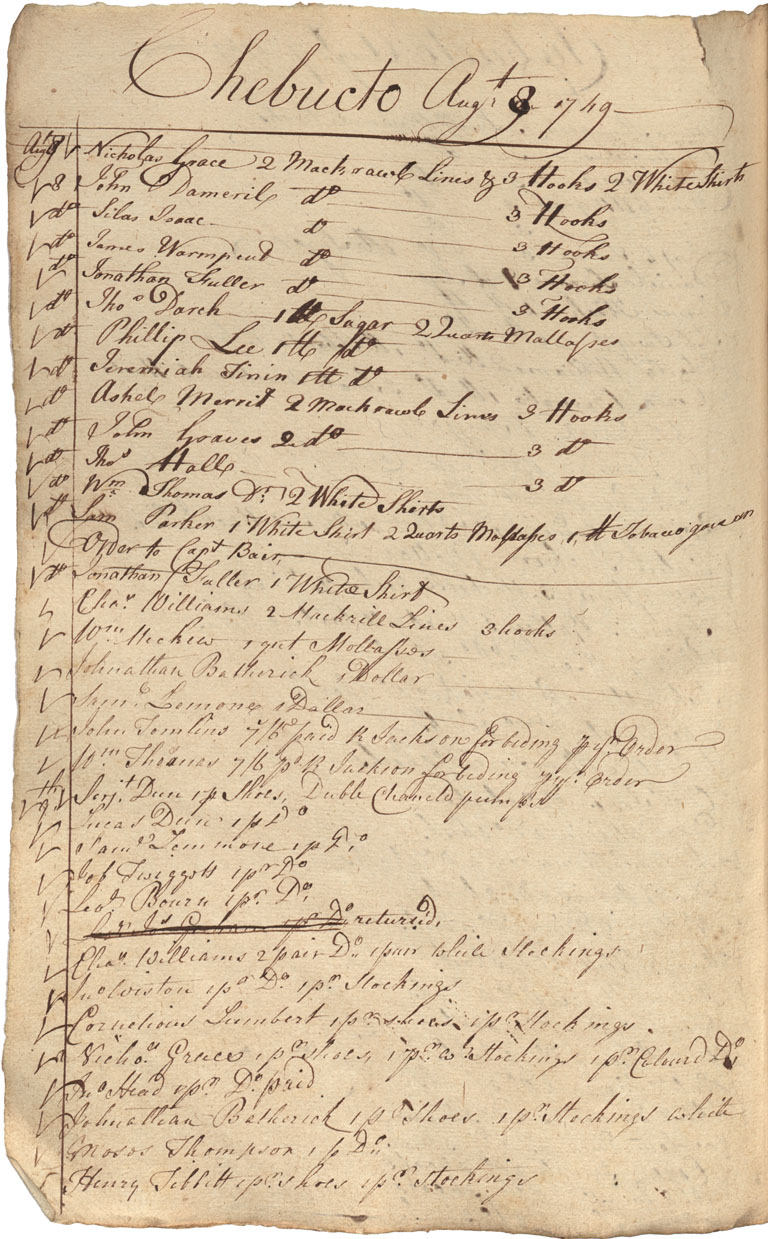 Chebucto Augt 8 1749
Augt 8 Nicholas Grace 2 Mackrawl Lines & 3 Hooks 2 White Shirts
8 John Dameril do 3 Hooks
do Silas Isaac do 3 Hooks
do James Warmpeut do 3 Hooks
do Jonathan Fuller do 3 Hooks
do Thos Darch 1 lb Sugar 2 Quarts Mallasses
do Phillip Lee 1 lb do
do Jeremiah Finin 1 lb do
do Ashel Merrit 2 Mackrawl Lines 3 Hooks
do John Graves 2 do 3 do
do Thos Hall 3 do
do Wm Thomas Dr 2 White Shirts
do Sam Parker 1 White Shirt 2 Quarts Molasses 1 lb Tobaco gave an
Order to Capt Bair
do Jonathan Fuller 1 White Shirt
Chas Williams 2 Mackrill Lines 3 hooks
Wm Mechew 1 qut Mollasses
Johnathan Batherick 1 Dollar
Saml Lemone 1 Dollar
John Tomlins 7/6 paid R Jackson for biding pr yr Order
Wm Thomas 7/6 pd R Jackson for biding pr yr Order
9th Serjt Dun 1 p Shoes, Duble Chaneld pumps
Lucas Dun 1 p Do
Saml Lemmone 1 p Do
Job Twiggott 1 pr Do
Leod Bourn 1 pr Do
1 pr Do returnd
Chas Williams 2 pair Do 1 pair white Stockings
Jno Wiston 1 pr Do 1 pr Stockings
Cornelious Lumbert 1 pr shoes 1 pr Stockings
Nichos Grace 1 pr shoes, 1 pr w Stockings 1 pr Colourd Do
Jno Head 1 pr Do paid
Johnathan Batherick 1 p Shoes 1 pr Stockings white
Moses Thompson 1 p Do
Henry Tibbitt 1 pr shoes 1 pr Stockings